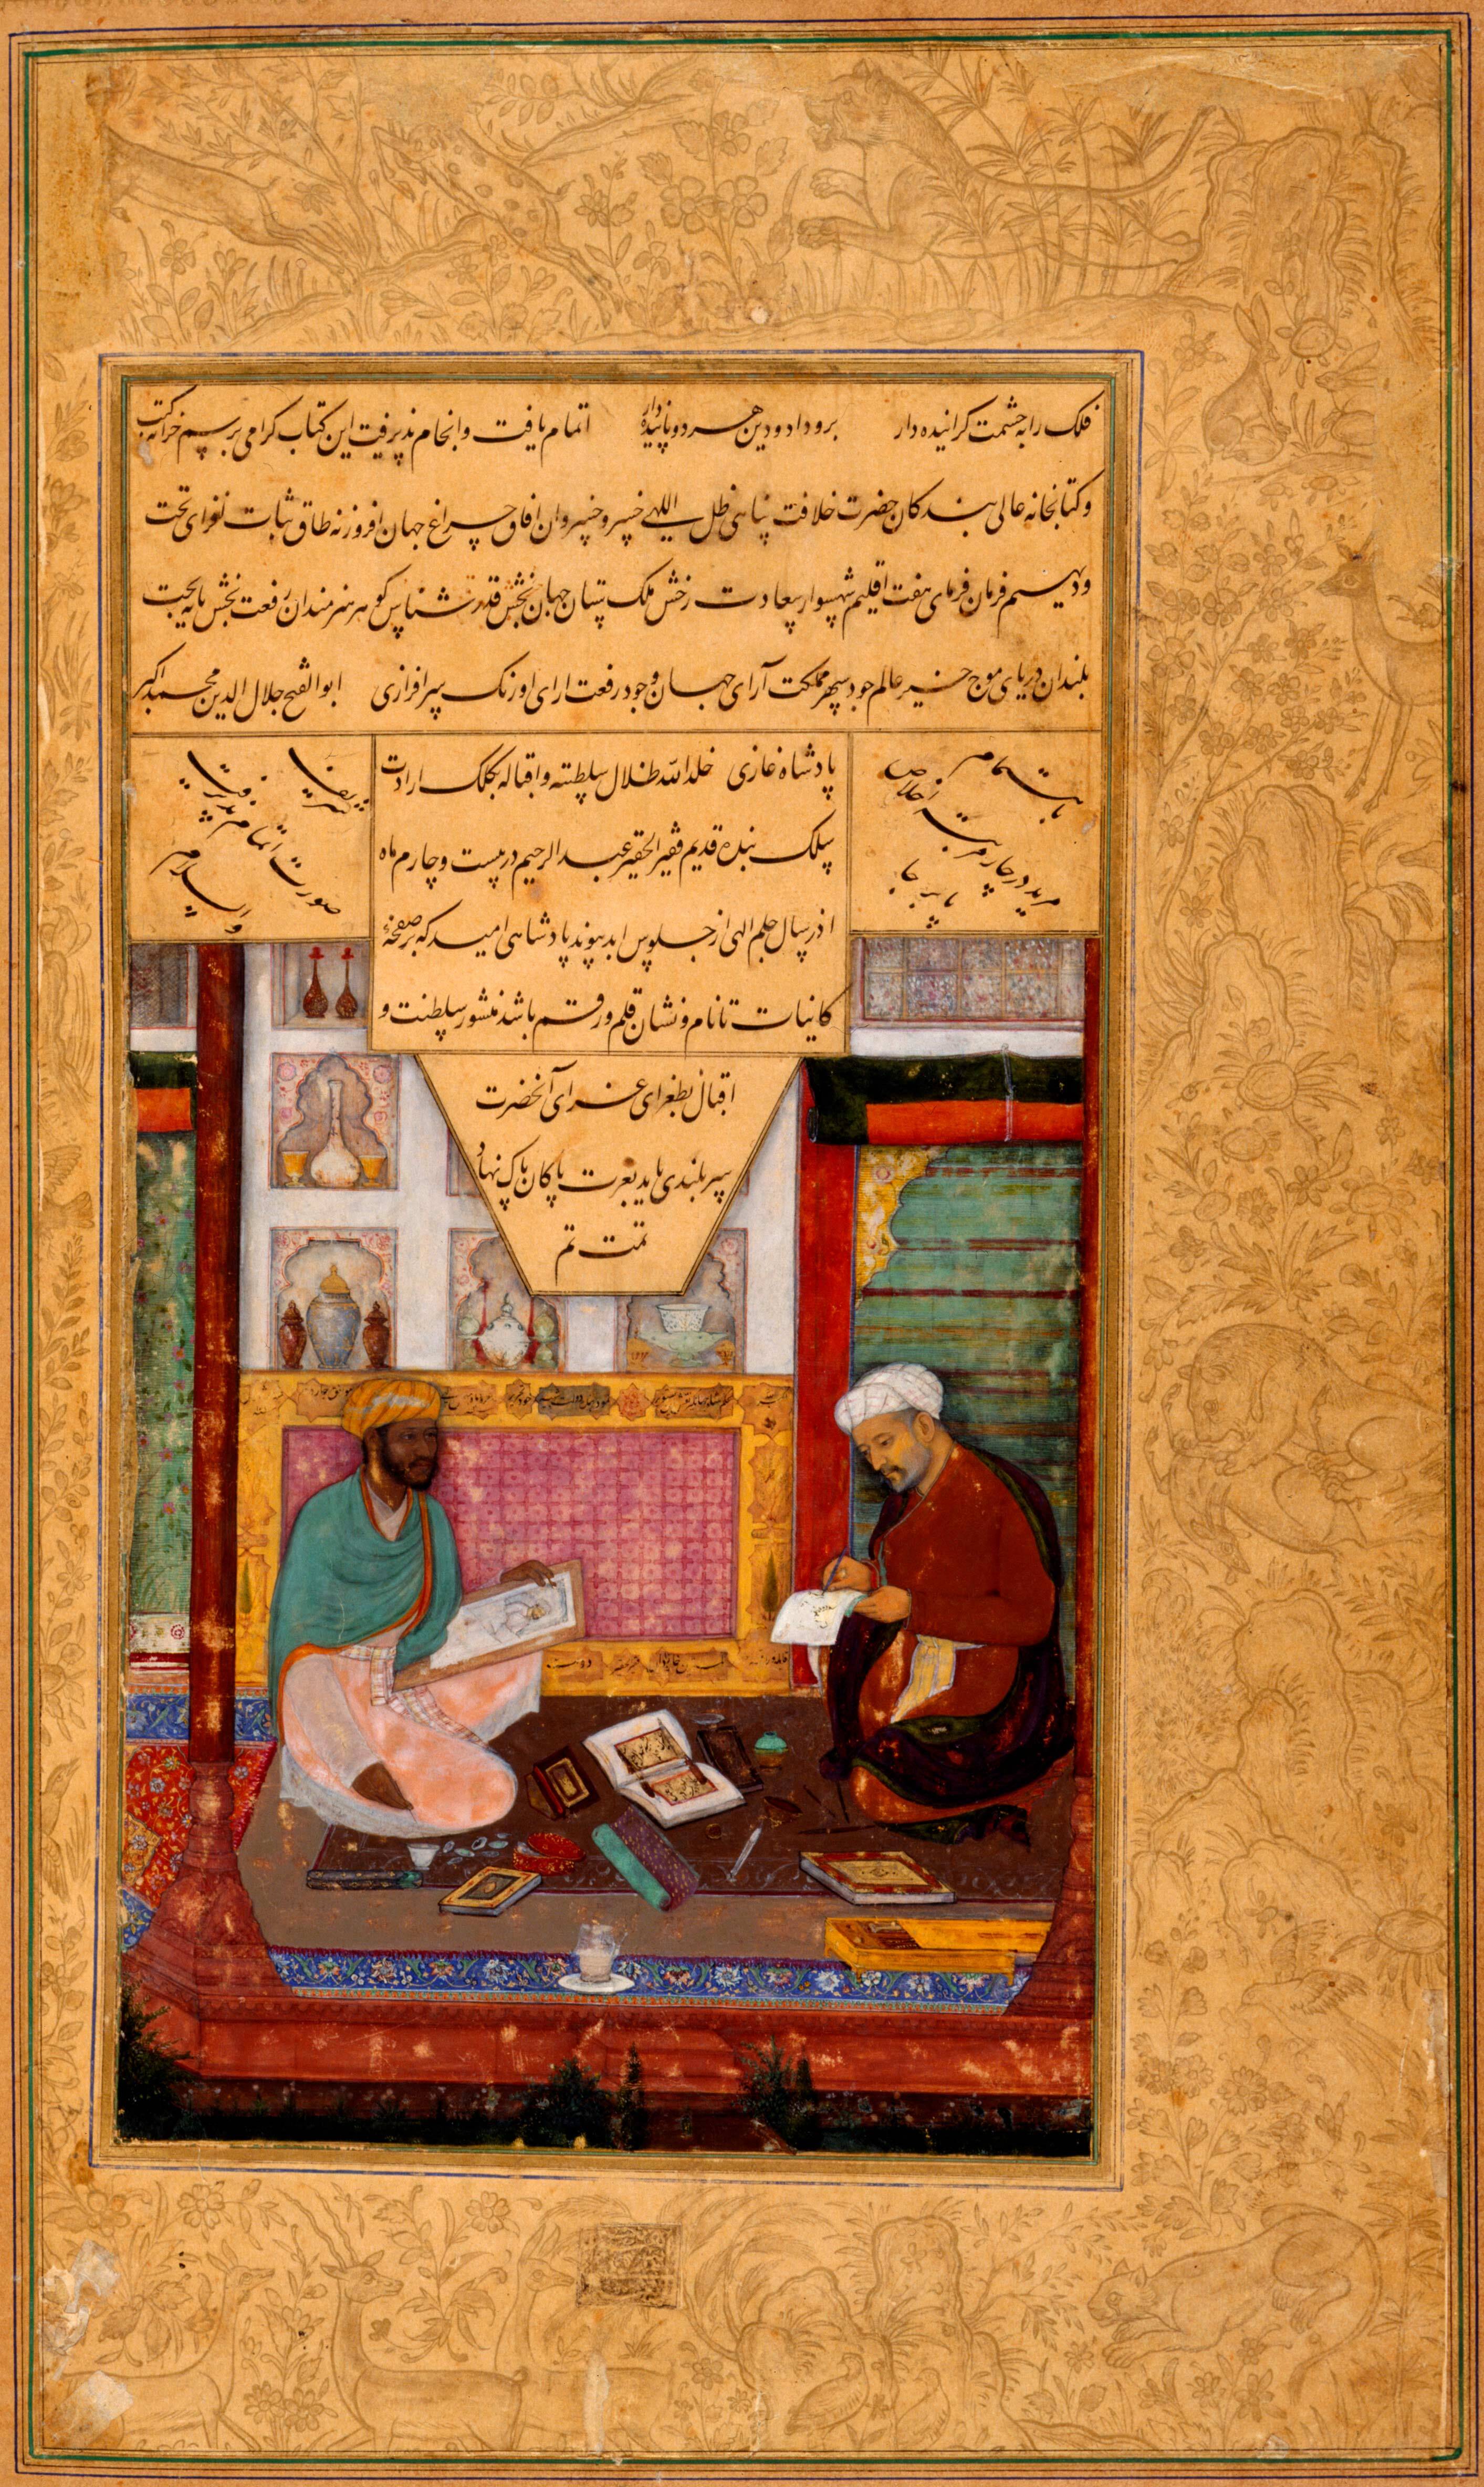 فلک را به حشمت گراینده دار برو داد و دین هر دو پاینده دار اتمام یافت و انجام پذیرفت این کتاب گرامی برسم خزانه کتب
و کتابخانه عالی بندگان حضرت خلافت پناهی ظل اللهی خسرو خسروان افاق چراغ جهان افروز نه طاق ثبات افزای تخت
و دیهیم فرمان فرمای هفت اقلیم شهسوار سعادت رخش ملک ستان جهان بخش قدر شناس گوهر هنرمندان رفعت بخش پایه بخت
بلندان دریای موج خیز عالم جود سپهر مملکت آرای جهان وجود رفعت ارای اورنگ سرافرازی ابوالفتح جلال الدین محمد اکبر
پادشاه غازی خلد الله ظلال سلطنته و اقباله بکلک ارادت
سلک بنده قدیم فقیر الحقیر عبد الرحیم در بیست و چارم ماه
اذر سال چلم الهی از جلوس ابد پیوند پادشاهی امید که بر صفحهٔ
کاینات تا نام و نشان قلم و رقم باشد منشور سلطنت و
باهتمام
مرید در چار مرتبه اخلاص پا بر جا
شریفا
صورت اتمام پذیرفت
والسلام
اقبال بطغرای غرای آنحضرت
سربلندی یابد بعزت پاکان پاک نهاد
تمت تم